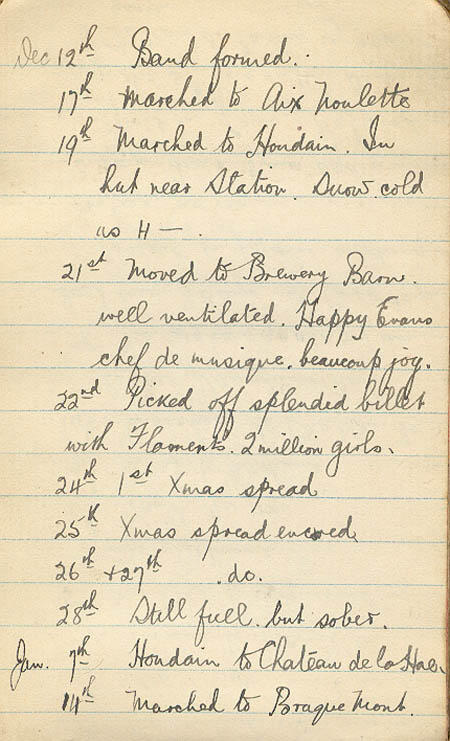 Dec 12th Band formed.
17th Marched to Aix Noulette
19th Marched to Houdain. In
hut near Station. Snow. cold
as H—.
21st Moved to Brewery Barn.
well ventilated. Happy Evans
chef de musique. beaucoup joy.
22nd Picked off splendid billet
with Flaments. 2 million girls.
24th 1st Xmas spread
25th Xmas spread encored
26th +27th .do.
28th Still full. but sober.
Jan. 7th Houdain to Chateau de la Haie.
14th Marched to Braque Mont.